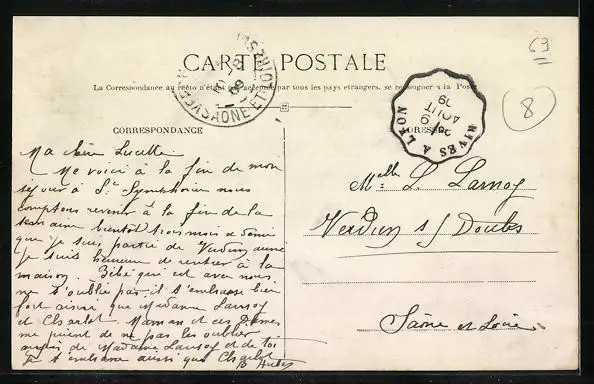 69
CARTE POSTALE
La Correspondance au recto n'étant pas acceptée par tous les pays étrangers, se renseigner à la Poste
8
CORRESPONDANCE
ADRESSE
VIVES A LYON
9
AOUT
09
SAONE-ET-LOIRE
Ma chère Lucette
Me voici à la fin de mon
séjour à St Symphorien nous
comptons revenir à la fin de la
semaine bientôt trois mois a demi
que je suis partie de Verdun aussi
je suis heureuse de rentrer à la
maison. Bébé qui est avec nous
ne t'oublie pas il t'embrasse bien
fort ainsi que Madame
et Charlot. Maman et ces Dames
me prient de ne pas les oublier
auprès de Madame et de toi
Je t'embrasse ainsi que Charlot
Melle L.
Verdun s/ Doubs
Saône et Loire